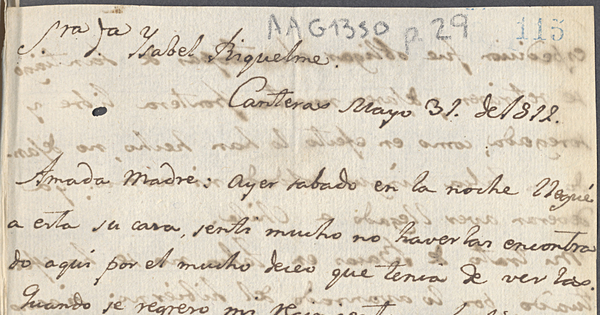 AAG1350 p. 29 115
S.ra d.a Ysabel Riquelme.
Canteras Mayo 31. de 1812.
Amada Madre: Ayer sabado en la noche llegué
a esta su casa, senti mucho no haverlas encontra
do aqui por el mucho deceo que tenia de verlas.
Quando se regreso mi